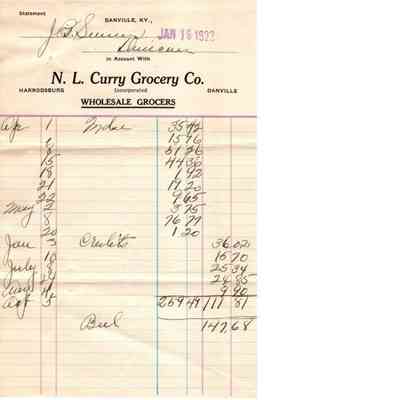 Statement
DANVILLE, KY.,
J.B. JAN 16 1923
Duncan
in Account With
N. L. Curry Grocery Co.
HARRODSBURG Incorporated DANVILLE
WHOLESALE GROCERS
Ap 1 Mdse 35 42
15 76
8 51 26
15 44 36
18 1 92
21 17 20
22 9 65
May 2 3 75
8 76 77
20 1 20
Jan 3 Credits 36.02
15 70
July 25 34
24 85
9 90
5 259 49 111 81
Bal 147.68